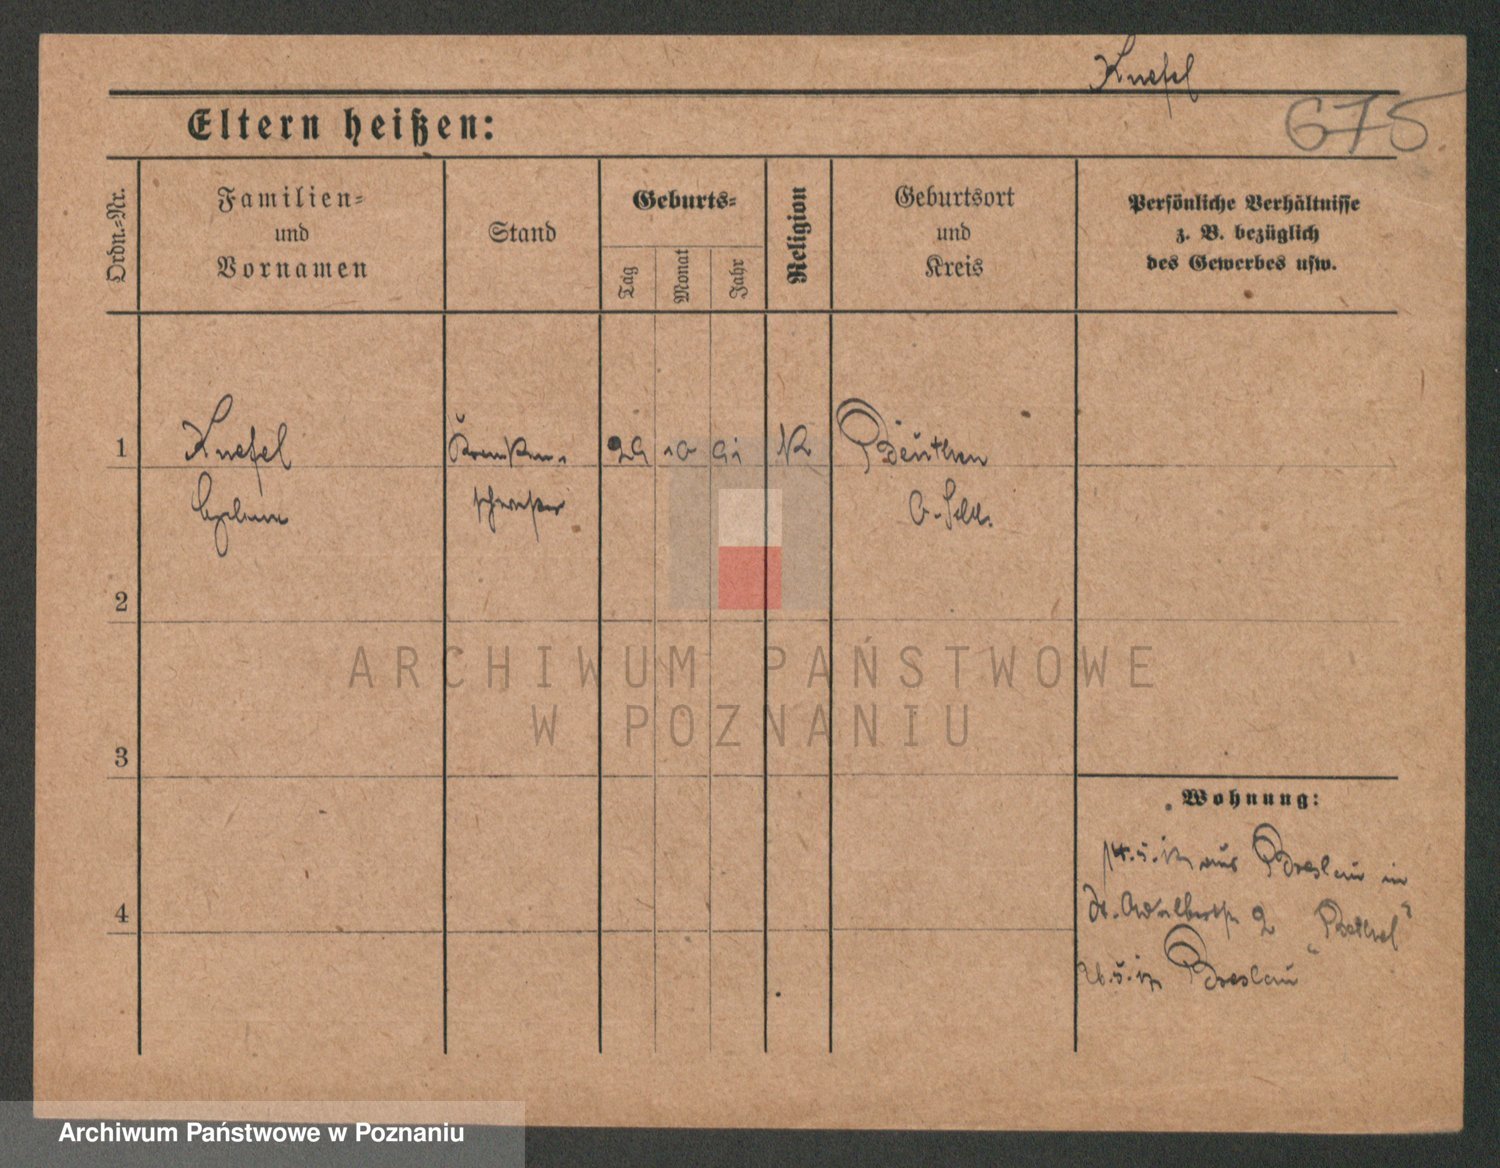 Knefel
675
Eltern heißen:
Ordn.-Nr.
Familien-
und
Vornamen
Stand
Geburts-
Tag
Monat
Jahr
Religion
Geburtsort
und
Kreis
Persönliche Verhältnisse
z. B. bezüglich
des Gewerbes usw.
1
Knefel
Kranken-
schwester
29 10 91
K
Beuthen
O.-Schl.
2
3
4
Wohnung:
aus Breslau in
2 "Bethel"
Breslau
ARCHIWUM PAŃSTWOWE
W POZNANIU
Archiwum Państwowe w Poznaniu